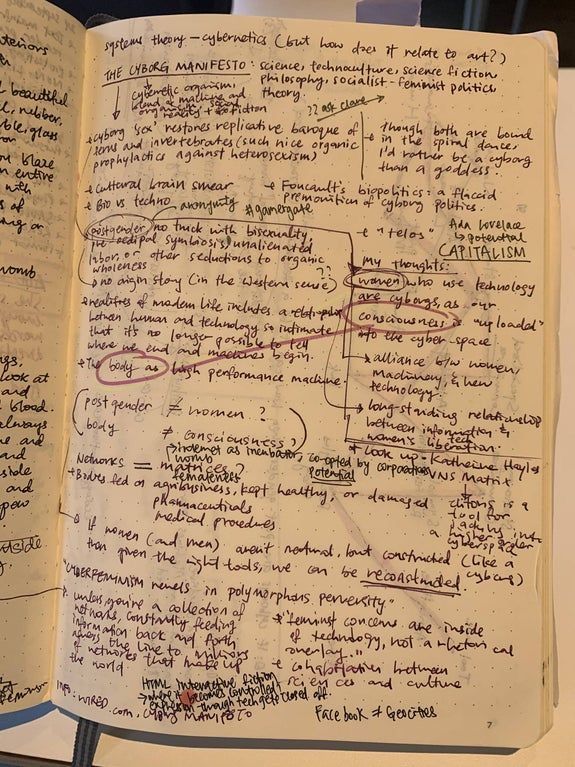 systems theory - cybernetics (but how does it relate to art?)
THE CYBORG MANIFESTO: science, technoculture, science fiction,
philosophy, socialist-feminist politics,
theory.
cybernetic organism,
blend of machine and
organism, social
reality + fiction
?? ask clare
Cyborg 'sex' restores replicative baroque of
ferns and invertebrates (such nice organic
prophylactics against heterosexism)
Though both are bound
in the spiral dance,
I'd rather be a cyborg
than a goddess.
Cultural brain smear
Bio vs techno
Foucault's biopolitics: a flaccid
premonition of cyborg politics.
anonymity #gamergate
postgender no truck with bisexuality,
pre-oedipal symbiosis, unalienated
labor, or other seductions to organic
wholeness
"telos"
Ada Lovelace
→ potential
CAPITALISM
no origin story (in the western sense) ??
realities of modern life includes a relationship
between human and technology so intimate
that it's no longer possible to tell
where we end and machines begin.
The body as high performance machine.
my thoughts:
women who use technology
are cyborgs, as our
consciousness is "uploaded"
to the cyber-space
→ alliance b/w women,
machinery, & new
technology.
→ long-standing relationship
between information &
tech
women's liberation.
* look up - Katherine Hayles
VNS Matrix
postgender ≠ women?
body
≠ consciousness?
Networks = matrices?
womb
femaleness
→ internet as incubator, co-opted by corporations
potential
Bodies fed on agribusiness, kept healthy, or damaged
pharmaceuticals
medical procedures
clitoris is a
tool for
a higher
cyberspace
If women (and men) aren't natural, but constructed (like a
cyborg)
than given the right tools, we can be reconstructed.
"CYBERFEMINISM revels in polymorphous perversity"
unless you're a collection of
networks, constantly feeding
information back and forth
across the line to millions
of networks that make up
the world
"feminist concerns are inside
of technology, not a rhetorical
overlay..."
cohabitation between
sciences and culture
HTML interactive fiction
→ where it becomes controlled
expression through tech gets closed off
Facebook ≠ Geocities
INFO: WIRED.com, CYBORG MANIFESTO
7